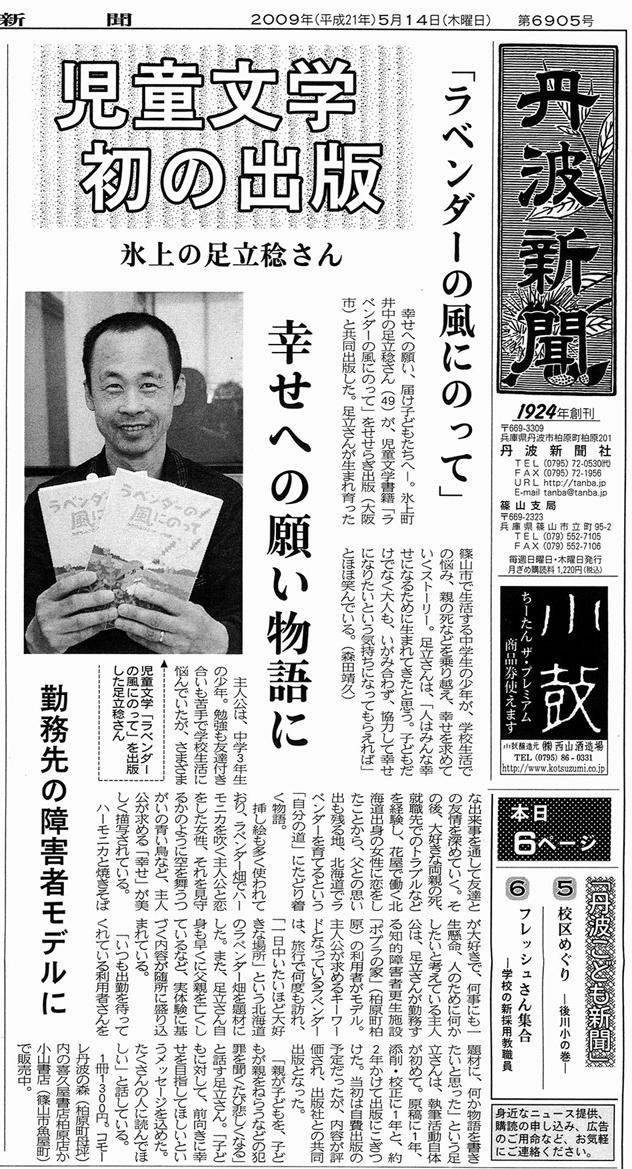 新聞
2009年(平成21年)5月14日(木曜日)
第6905号
丹波新聞
1924年創刊
〒669-3309
兵庫県丹波市柏原町柏原201
丹波新聞社
TEL (0795) 72-0530㈹
FAX (0795) 72-1956
URL http://tanba.jp
E-mail tanba@tanba.jp
篠山支局
〒669-2323
兵庫県篠山市立町95-2
TEL (079) 552-7105
FAX (079) 552-7106
毎週日曜日・木曜日発行
月ぎめ購読料1,220円(税込)
小鼓
ちーたん ザ・プレミアム
商品券使えます
小鼓醸造元 ㈱西山酒造場
TEL (0795) 86-0331
http://www.kotsuzumi.co.jp
本日
6ページ
「丹波こども新聞」
5 校区めぐり
―後川小の巻―
6 フレッシュさん集合
―学校の新採用教職員
身近なニュース提供、
購読の申し込み、広告
のご用命など、お気軽
にご連絡ください。
「ラベンダーの風にのって」
児童文学
初の出版
氷上の足立稔さん
幸せへの願い物語に
勤務先の障害者モデルに
幸せへの願い、届け子どもたちへ―。氷上町
井中の足立稔さん(49)が、児童文学書籍「ラ
ベンダーの風にのって」をせせらぎ出版(大阪
市)と共同出版した。足立さんが生まれ育った
篠山市で生活する中学生の少年が、学校生活で
の悩み、親の死などを乗り越え、幸せを求めて
いくストーリー。足立さんは、「人はみんな幸
せになるために生まれてきたと思う。子どもだ
けでなく大人も、いがみ合わず、協力して幸せ
になりたいという気持ちになってもらえれば」
とほほ笑んでいる。(森田靖久)
ラベンダーの
風にのって
ラベンダーの
風にのって
児童文学「ラベンダー
の風にのって」を出版
した足立稔さん
主人公は、中学3年生
の少年。勉強も友達付き
合いも苦手で学校生活に
悩んでいたが、さまざま
な出来事を通して友達と
の友情を深めていく。そ
の後、大好きな両親の死、
就職先でのトラブルなど
を経験し、花屋で働く北
海道出身の女性に恋をし
たことから、父との思い
出も残る地、北海道でラ
ベンダーを育てるという
「自分の道」にたどり着
く物語。
挿し絵も多く使われて
おり、ラベンダー畑でハー
モニカを吹く主人公と恋
をした女性、それを見守
るかのように空を舞うつ
がいの青い鳥など、主人
公が求める「幸せ」が美
しく描写されている。
ハーモニカと焼きそば
が大好きで、何事にも一
生懸命、人のために何か
したいと考えている主人
公は、足立さんが勤務す
る知的障害者更生施設
「ポプラの家」(柏原町柏
原)の利用者がモデル。
主人公が求めるキーワー
ドとなっているラベンダー
は、旅行で何度も訪れ、
「一日中いたいほど大好
きな場所」という北海道
のラベンダー畑を題材に
した。また、足立さん自
身も早くに父親を亡くし
ているなど、実体験に基
づく内容が随所に盛り込
まれている。
「いつも出勤を待って
くれている利用者さんを
題材に、何か物語を書き
たいと思った」という足
立さんは、執筆活動自体
が初めて。原稿に1年、
添削・校正に1年と、約
2年かけて出版にこぎつ
けた。当初は自費出版の
予定だったが、内容が評
価され、出版社との共同
出版となった。
「親が子どもを、子ど
もが親をねらうなどの犯
罪を聞くたび悲しくなる」
と話す足立さん。「子ど
もに対して、前向きに幸
せを目指してほしいとい
うメッセージを込めた。
たくさんの人に読んでほ
しい」と話している。
1冊1300円。コモー
レ丹波の森(柏原町母坪)
内の喜久屋書店柏原店か
小山書店(篠山市魚屋町)
で販売中。